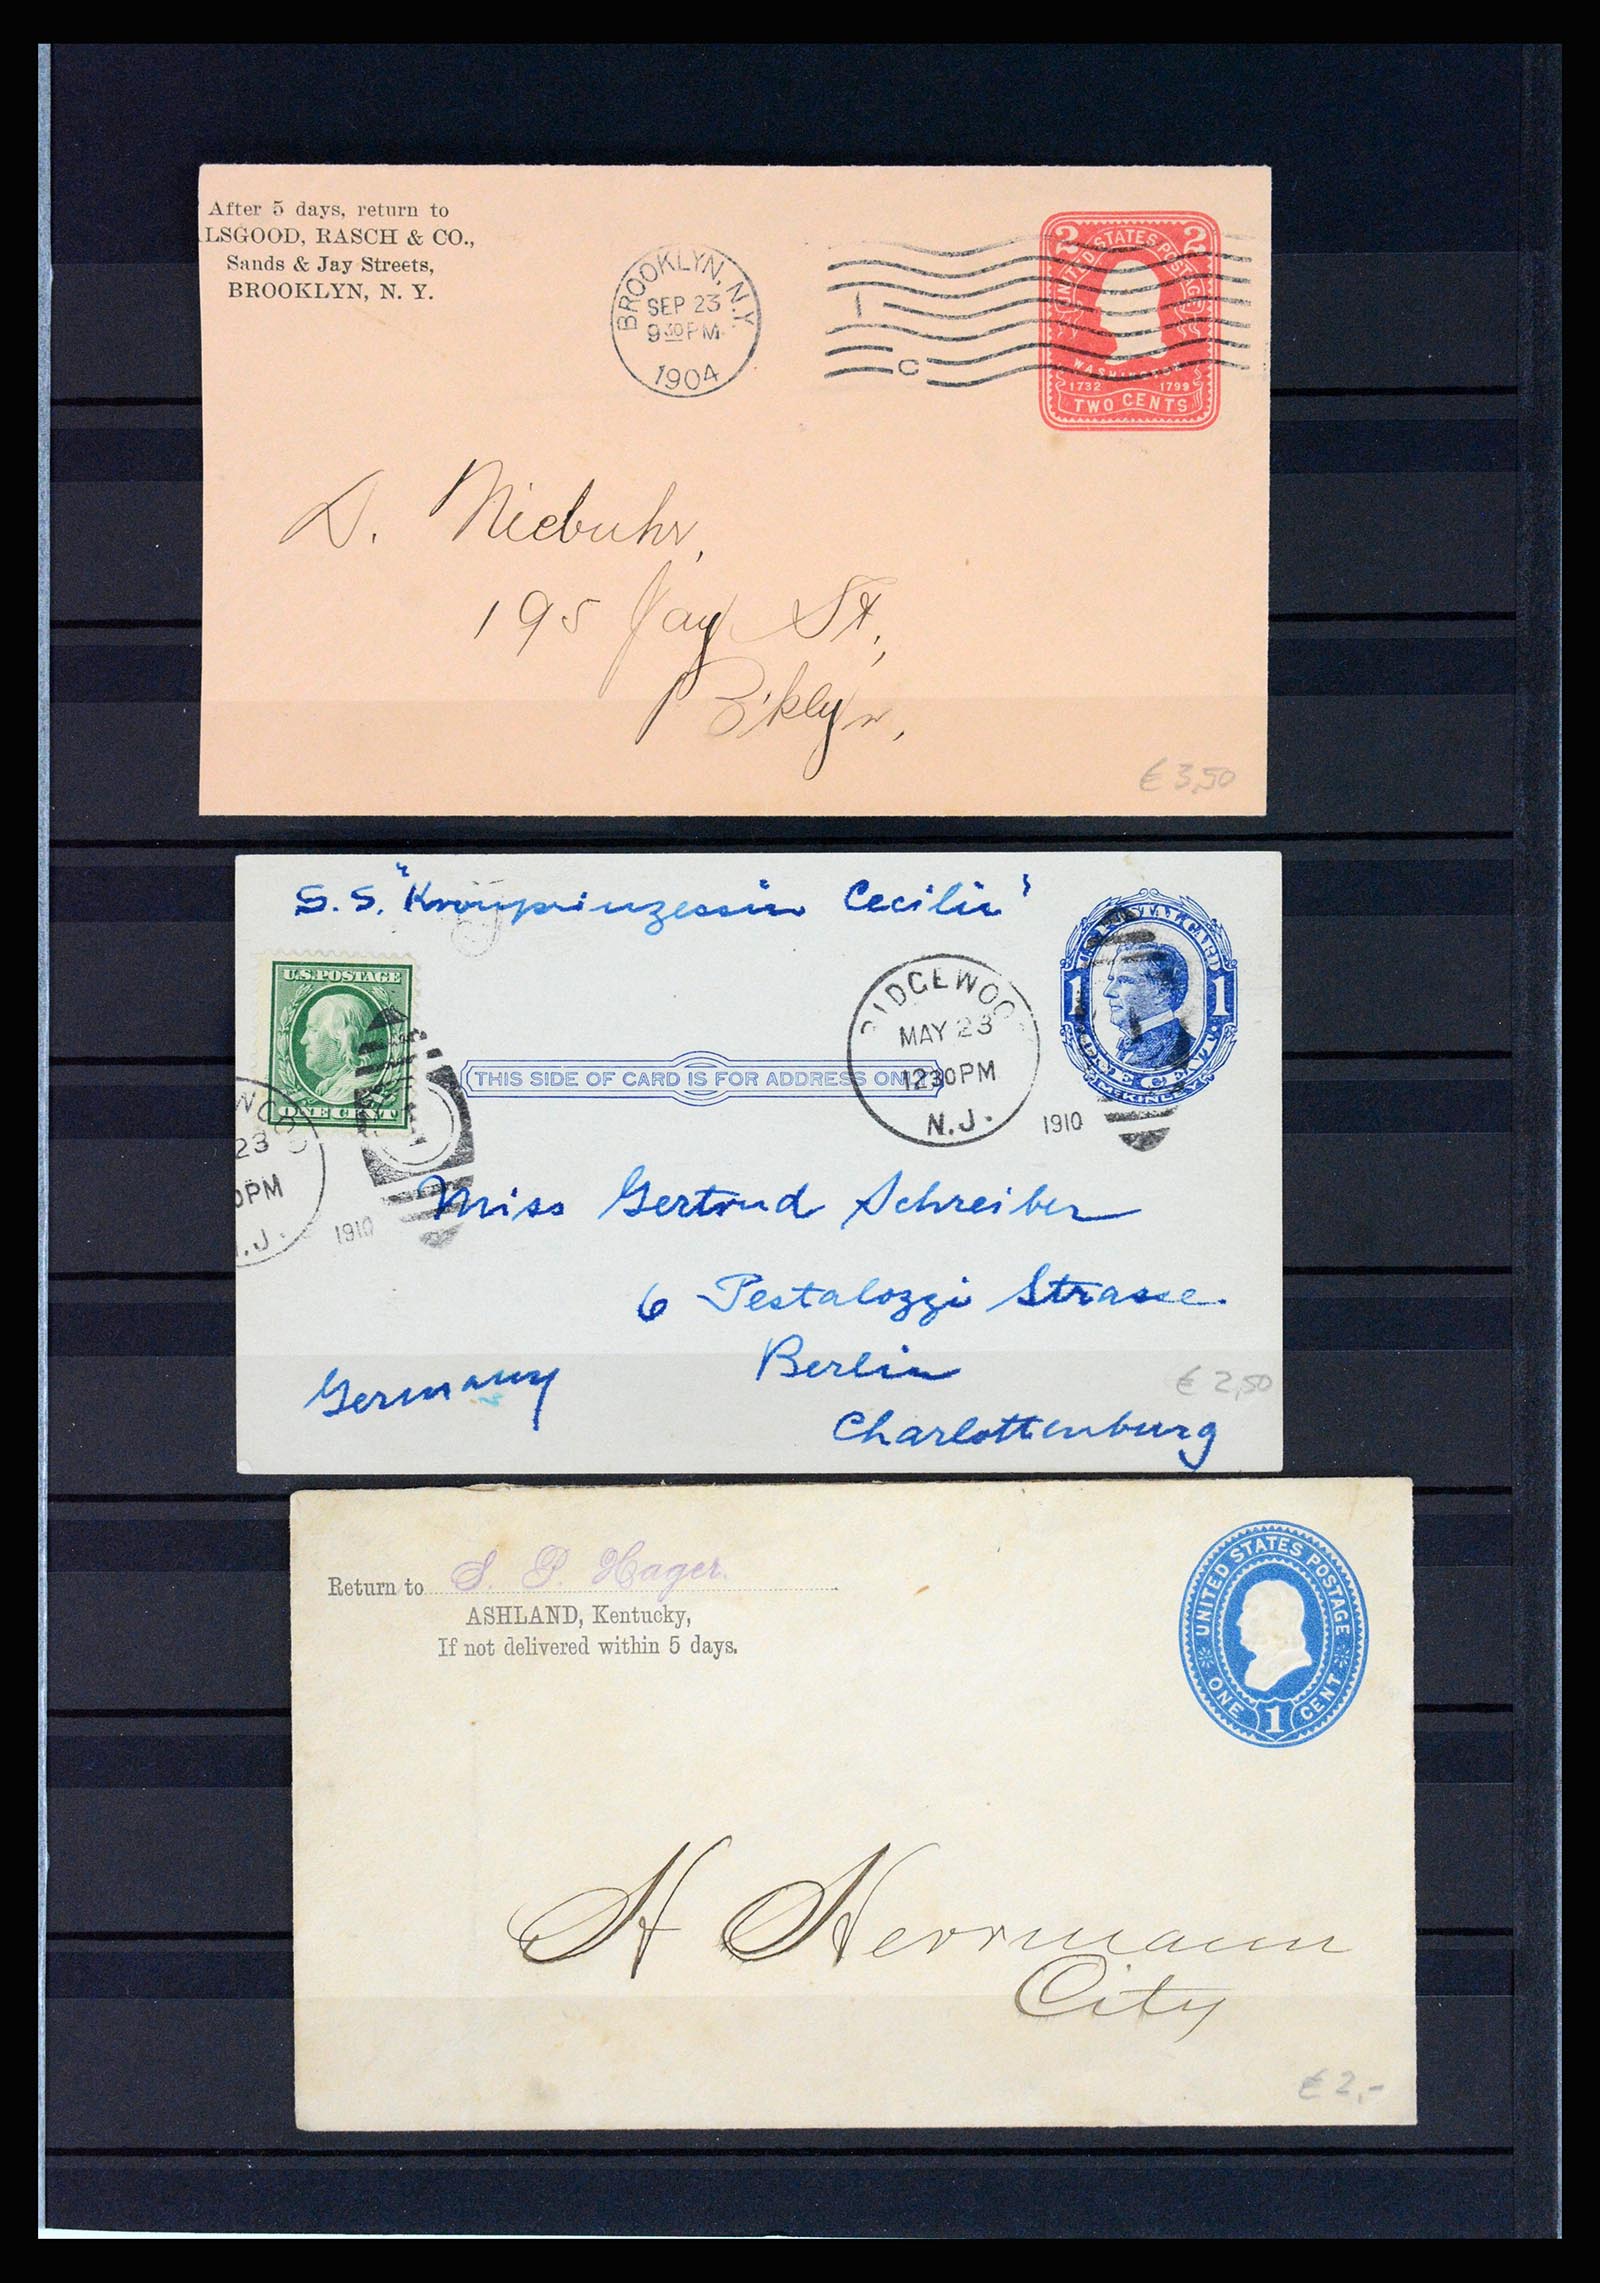 After 5 days, return to
LSGOOD, RASCH & CO.,
Sands & Jay Streets,
BROOKLYN, N. Y.
BROOKLYN, N.Y.
SEP 23
9 30 PM
1904
1
C
2 2
UNITED STATES POSTAGE
WASHINGTON
1732 1799
TWO CENTS
D. Niebuhr,
195 Jay St.,
B'klyn,
€ 3,50
S.S. "Kronprinzessin Cecilie"
U.S. POSTAGE
ONE CENT
THIS SIDE OF CARD IS FOR ADDRESS ONLY
RIDGEWOOD
MAY 23
12 30 PM
N.J.
1910
1 1
ONE CENT
McKINLEY
23
PM
.J.
1910
Miss Gertrud Schreiber
6 Pestalozzi Strasse.
Berlin
Germany
Charlottenburg
€ 2,50
Return to S. P. Hager.
ASHLAND, Kentucky,
If not delivered within 5 days.
UNITED STATES POSTAGE
ONE 1 CENT
H Herrmann
City
€ 2,-